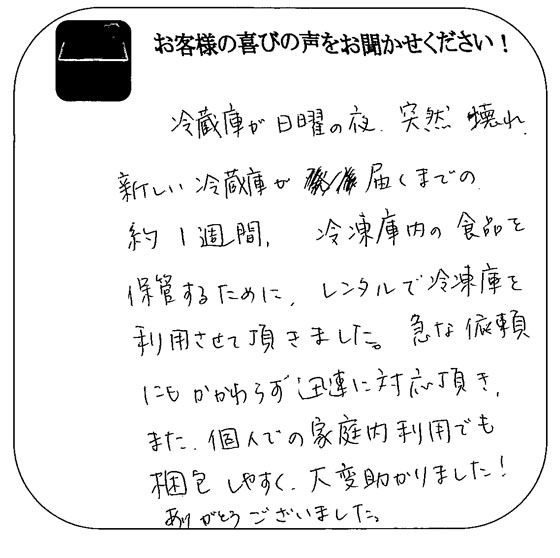 お客様の喜びの声をお聞かせください！
冷蔵庫が日曜の夜、突然壊れ、
新しい冷蔵庫が届くまでの
約1週間、冷凍庫内の食品を
保管するために、レンタルで冷凍庫を
利用させて頂きました。急な依頼
にもかかわらず迅速に対応頂き、
また、個人での家庭内利用でも
梱包しやすく、大変助かりました！
ありがとうございました。